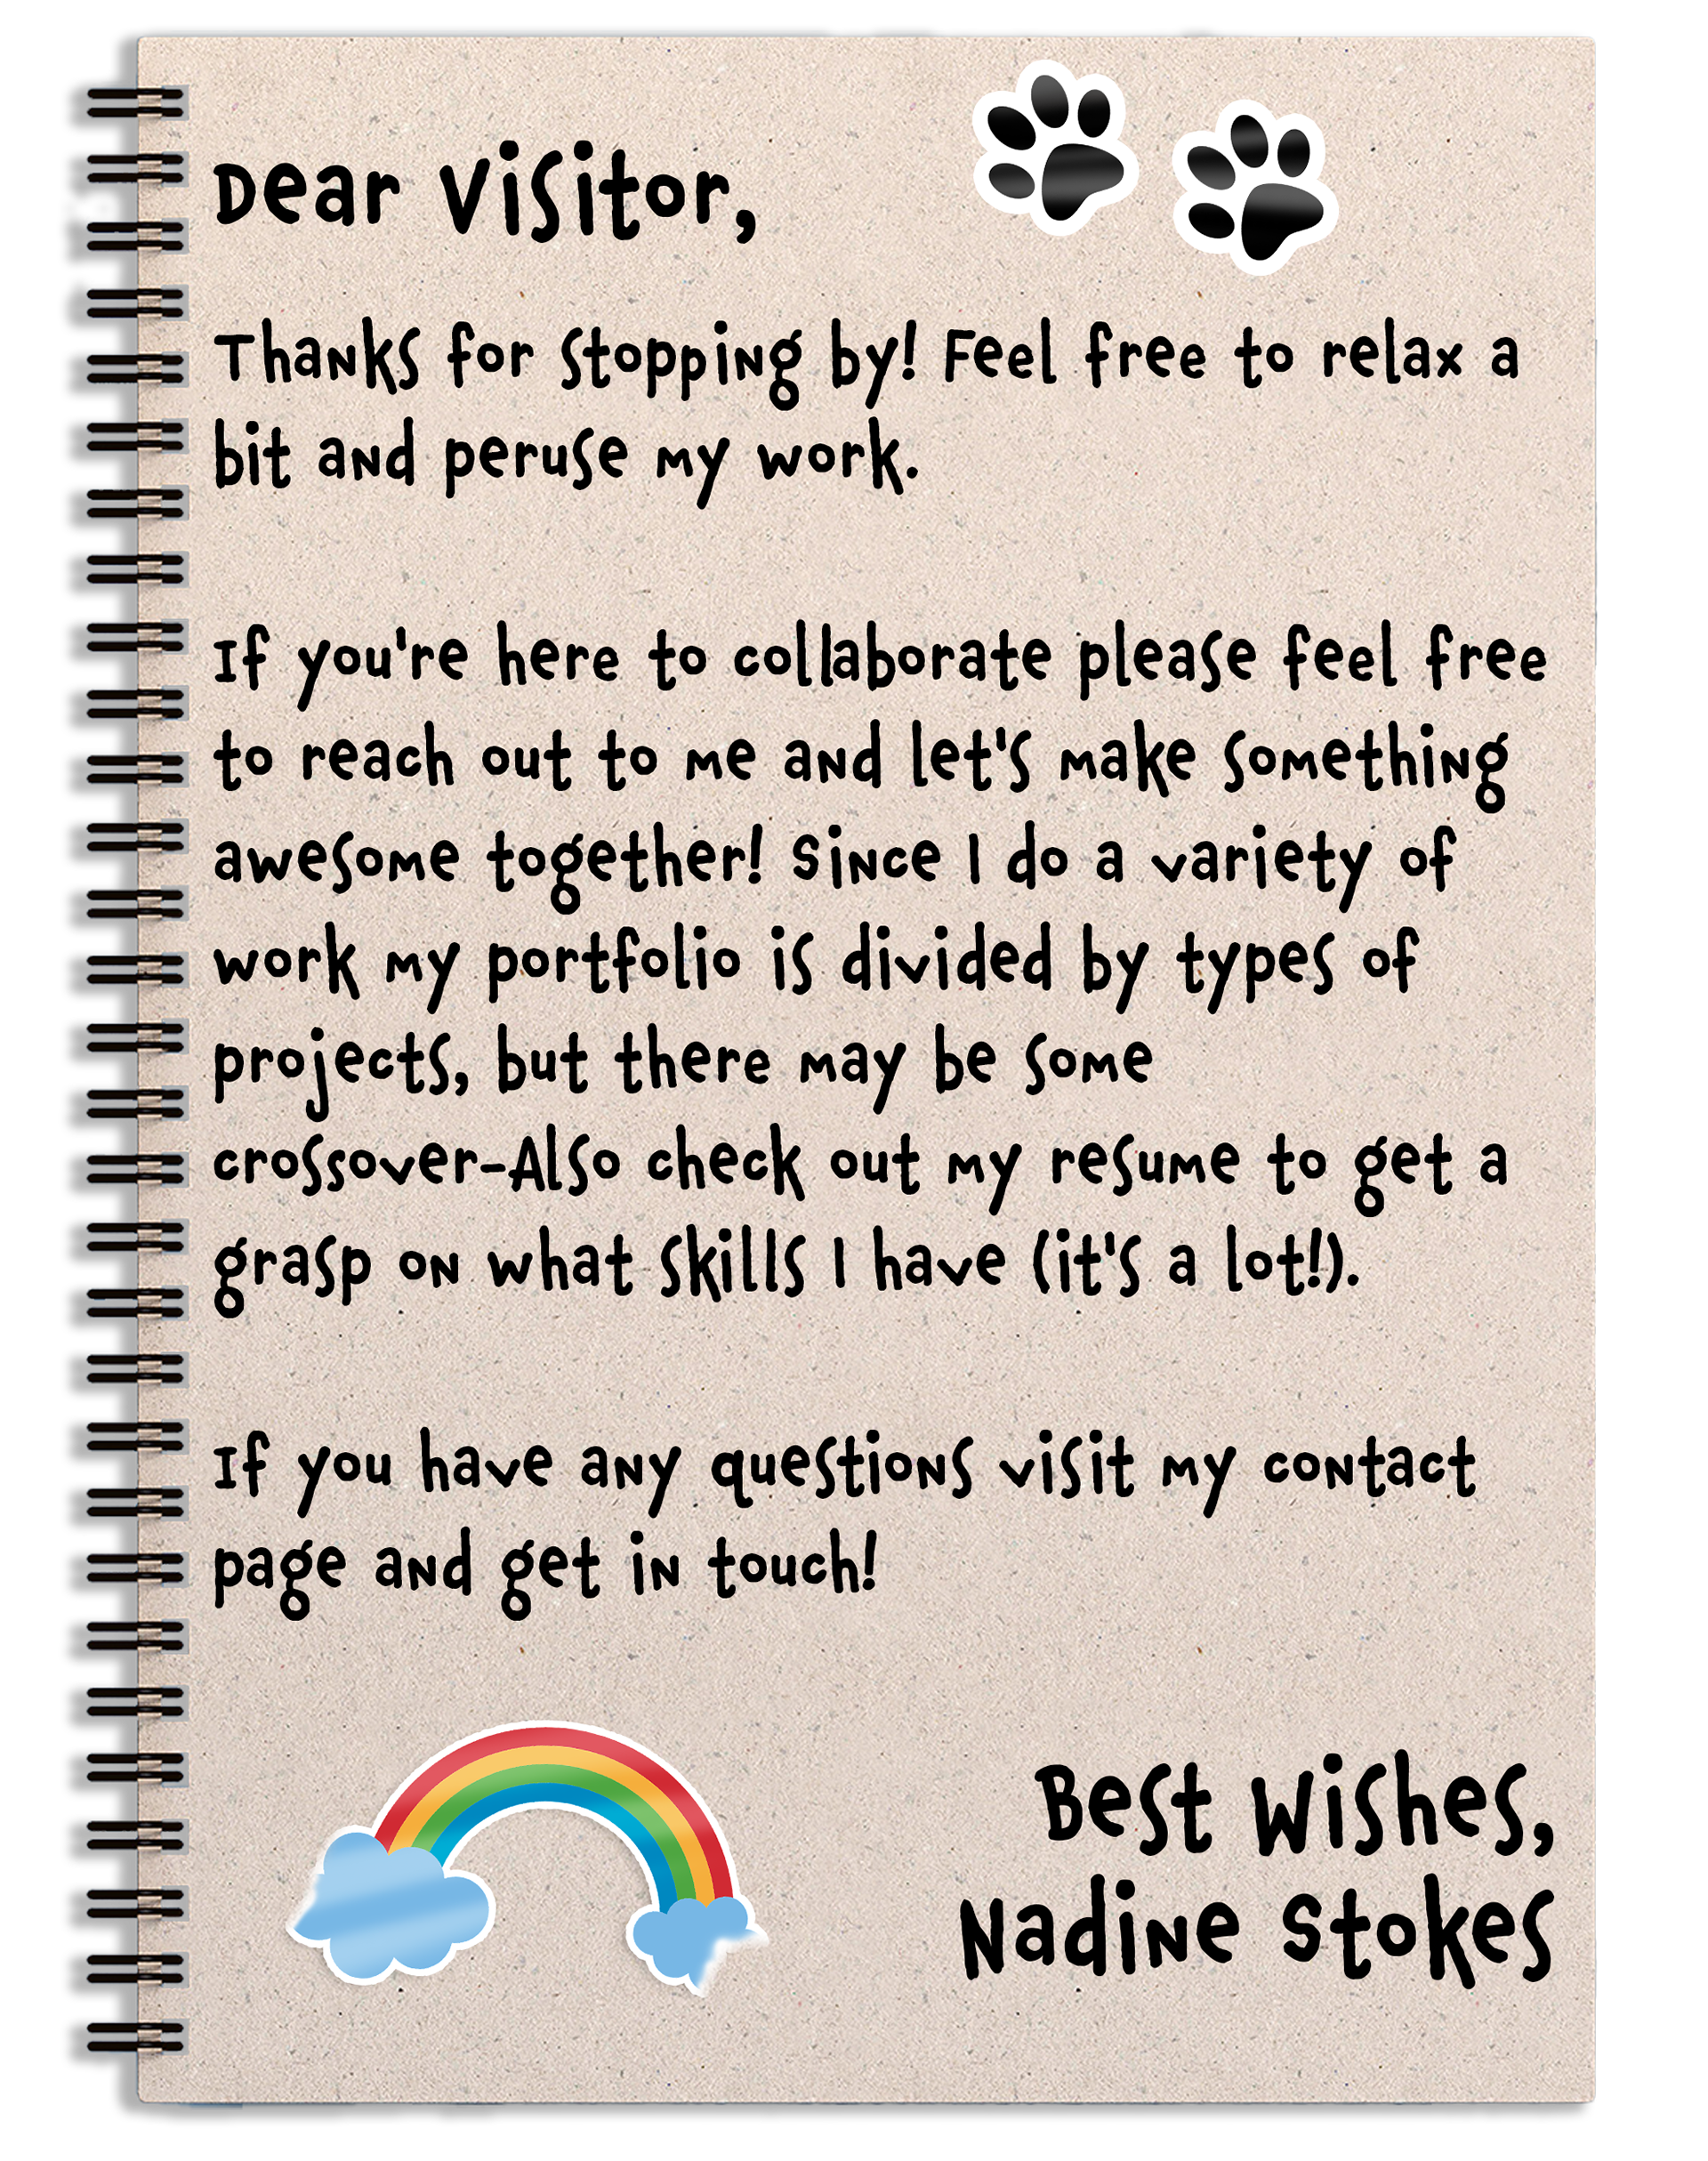 Dear Visitor,
Thanks for stopping by! Feel free to relax a
bit and peruse my work.
If you're here to collaborate please feel free
to reach out to me and let's make something
awesome together! Since I do a variety of
work my portfolio is divided by types of
projects, but there may be some
crossover-Also check out my resume to get a
grasp on what skills I have (it's a lot!).
If you have any questions visit my contact
page and get in touch!
Best Wishes,
Nadine Stokes